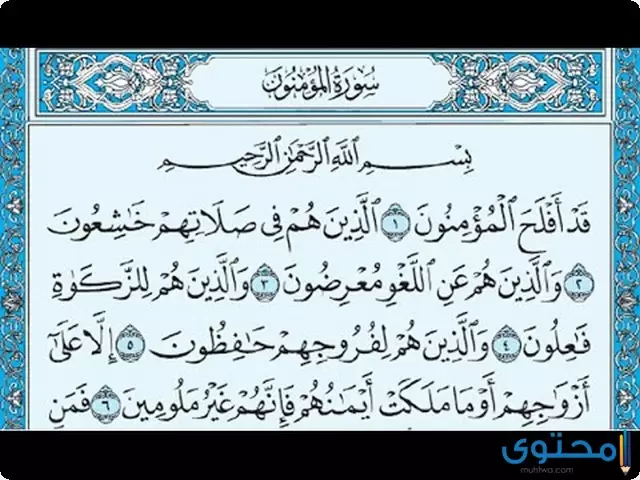 سُورَةُ المُؤْمِنُونَ
بِسْمِ اللَّهِ الرَّحْمَٰنِ الرَّحِيمِ
قَدْ أَفْلَحَ الْمُؤْمِنُونَ ١ الَّذِينَ هُمْ فِي صَلَاتِهِمْ خَاشِعُونَ
٢ وَالَّذِينَ هُمْ عَنِ اللَّغْوِ مُعْرِضُونَ ٣ وَالَّذِينَ هُمْ لِلزَّكَوٰةِ
فَٰعِلُونَ ٤ وَالَّذِينَ هُمْ لِفُرُوجِهِمْ حَٰفِظُونَ ٥ إِلَّا عَلَىٰ
أَزْوَٰجِهِمْ أَوْ مَا مَلَكَتْ أَيْمَٰنُهُمْ فَإِنَّهُمْ غَيْرُ مَلُومِينَ ٦ فَمَنِ
محتوى
muhtwa.com